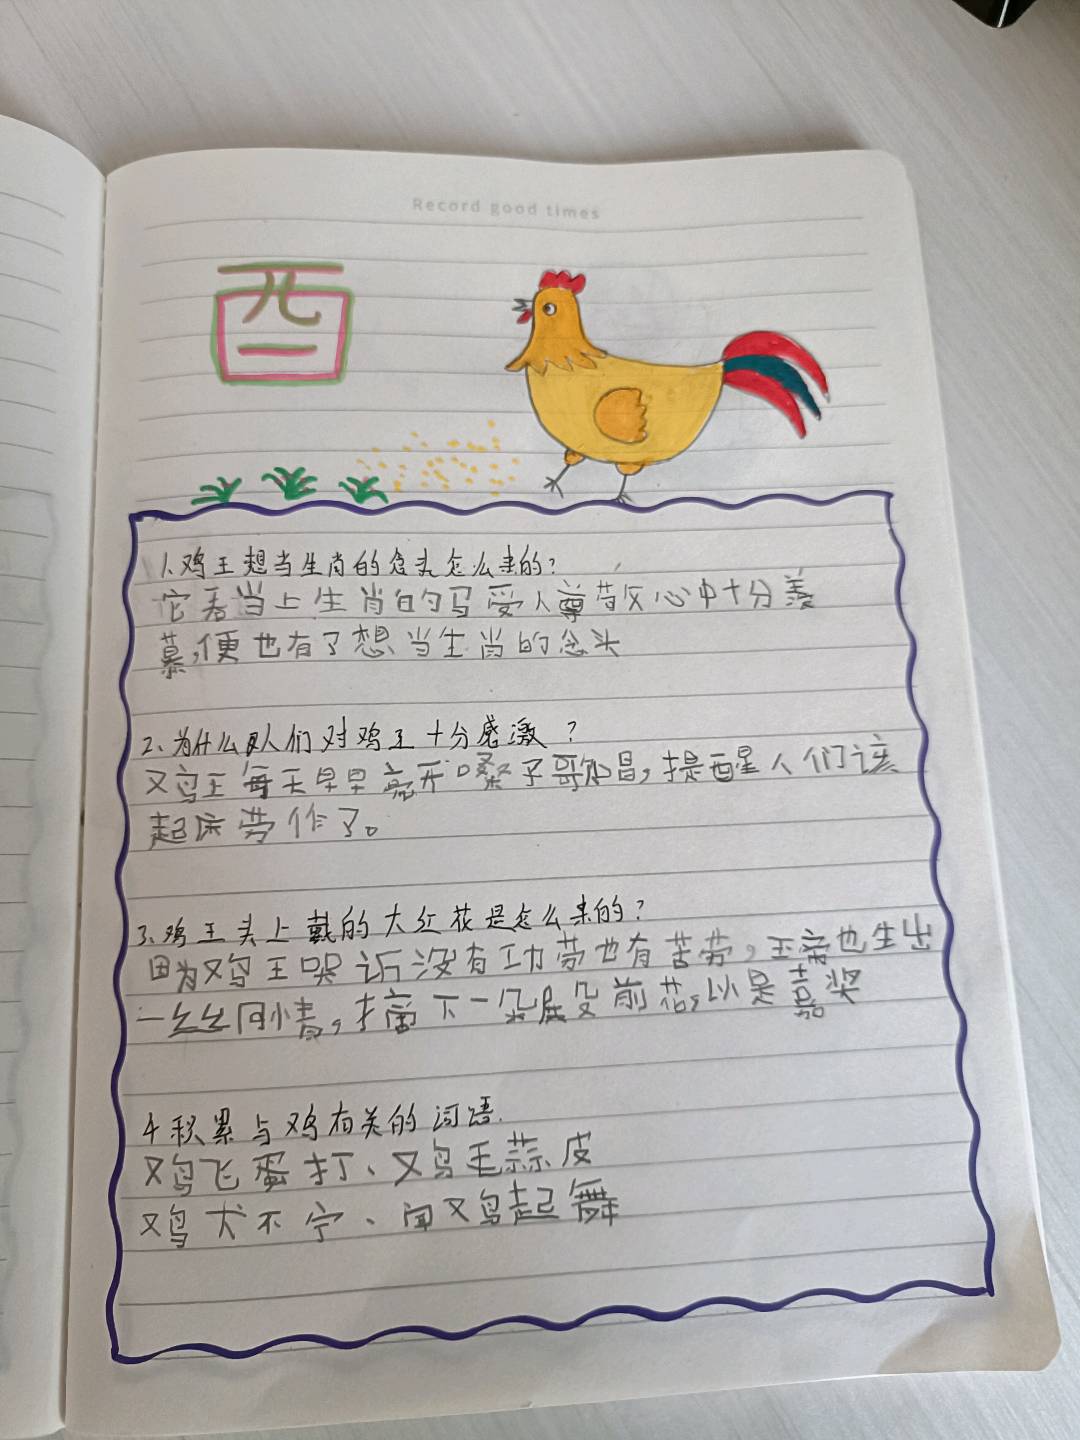 Record good times
酉
1.鸡王想当生肖的念头怎么来的?
它看当上生肖的马受人尊敬心中十分羡
慕,便也有了想当生肖的念头
2.为什么人们对鸡王十分感激?
鸡王每天早早亮开嗓子歌唱,提醒人们该
起床劳作了。
3.鸡王头上戴的大红花是怎么来的?
因为鸡王哭诉没有功劳也有苦劳,玉帝也生出
一丝丝同情,摘下一朵殿前花,以是嘉奖
4积累与鸡有关的词语.
鸡飞蛋打、鸡毛蒜皮
鸡犬不宁、闻鸡起舞